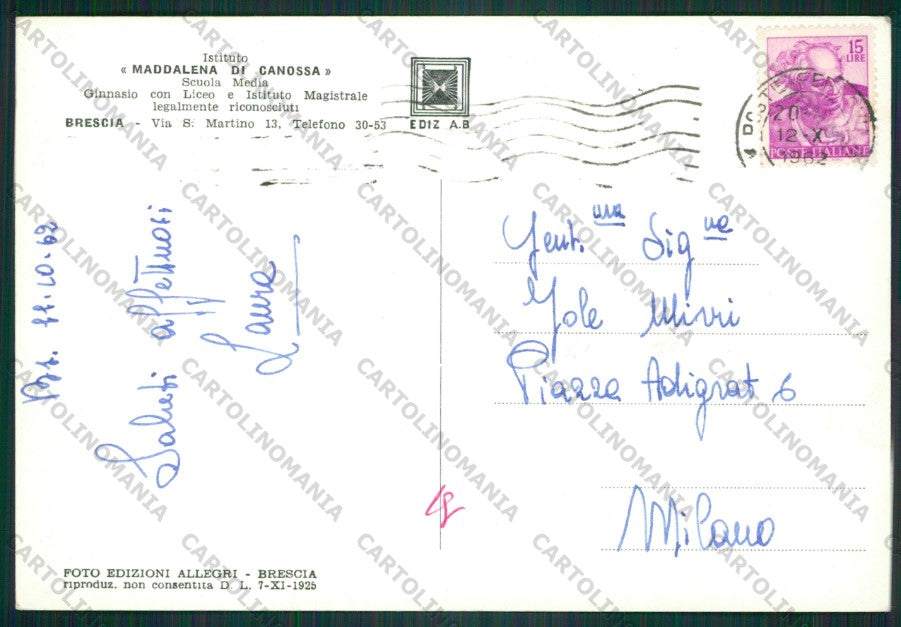 Istituto
« MADDALENA DI CANOSSA »
Scuola Media
Ginnasio con Liceo e Istituto Magistrale
legalmente riconosciuti
BRESCIA - Via S. Martino 13, Telefono 30-53
EDIZ A.B
15
LIRE
POSTE ITALIANE
20
12 - X
1962
Bs. 11.10.62
Saluti affettuosi
Laura
Gent.ma Sig.na
Jole Mirri
Piazza Adigrat 6
Milano
FOTO EDIZIONI ALLEGRI - BRESCIA
riproduz. non consentita D. L. 7-XI-1925
CARTOLINOMANIA